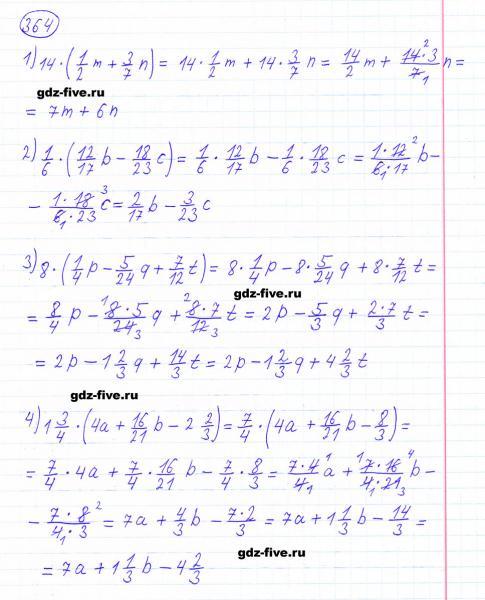 364
1) 14·(1/2 m + 3/7 n) = 14·1/2 m + 14·3/7 n = 14/2 m + 14·3/7 n =
gdz-five.ru
= 7m + 6n
2) 1/6·(12/17 b − 18/23 c) = 1/6·12/17 b − 1/6·18/23 c = 1·12/6·17 b −
− 1·18/6·23 c = 2/17 b − 3/23 c
3) 8·(1/4 p − 5/24 q + 7/12 t) = 8·1/4 p − 8·5/24 q + 8·7/12 t =
gdz-five.ru
= 8/4 p − 8·5/24 q + 8·7/12 t = 2p − 5/3 q + 2·7/3 t =
= 2p − 1 2/3 q + 14/3 t = 2p − 1 2/3 q + 4 2/3 t
gdz-five.ru
4) 1 3/4·(4a + 16/21 b − 2 2/3) = 7/4·(4a + 16/21 b − 8/3) =
= 7/4·4a + 7/4·16/21 b − 7/4·8/3 = 7·4/4 a + 7·16/4·21 b −
− 7·8/4·3 = 7a + 4/3 b − 7·2/3 = 7a + 1 1/3 b − 14/3 =
= 7a + 1 1/3 b − 4 2/3
gdz-five.ru